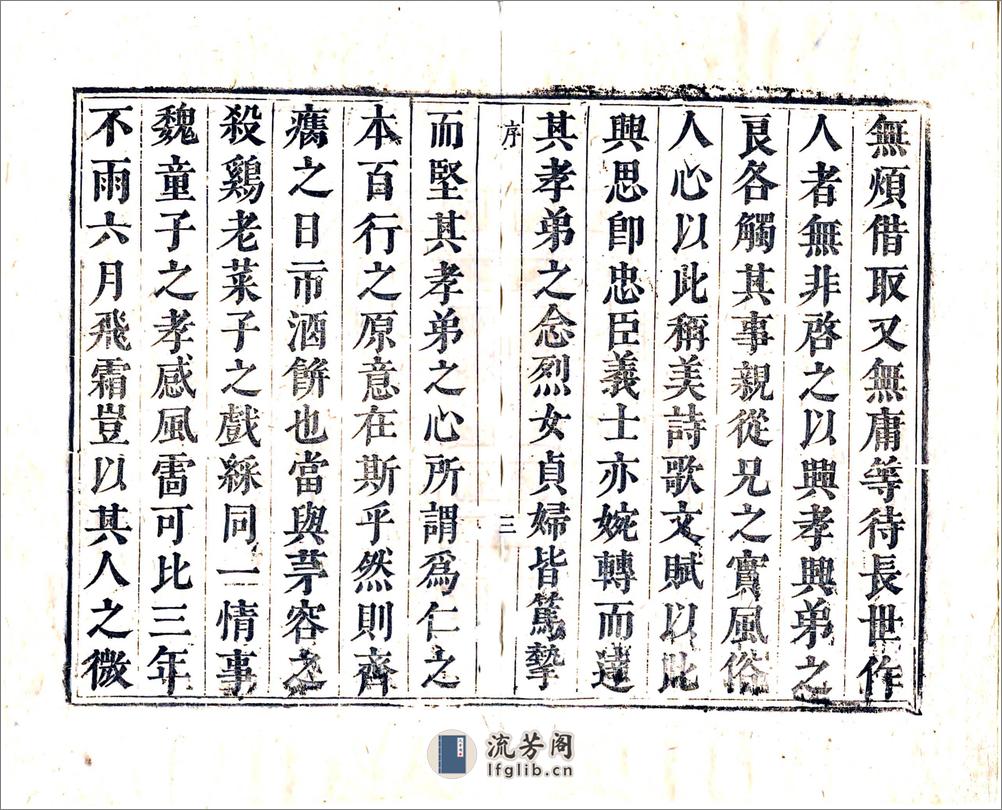 無煩借取又無庸等待長世作
人者無非啓之以興孝興弟之
良各觸其事親從兄之實風俗
人心以此稱美詩歌文賦以此
興思卽忠臣義士亦婉轉而達
其孝弟之念烈女貞婦皆篤摯
序
三
而堅其孝弟之心所謂爲仁之
本百行之原意在斯乎然則齊
癘之日市酒餅也當與茅容之
殺鷄老萊子之戲綵同一情事
魏童子之孝感風雷可比三年
不雨六月飛霜豈以其人之微
流芳阁
lfglib.cn